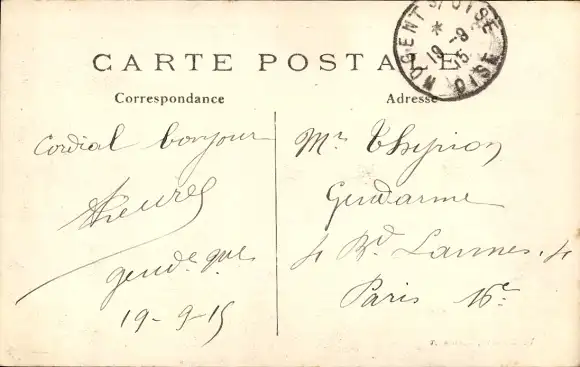 CARTE POSTALE
NOGENT S/ OISE
*
19 - 9
15
OISE
Correspondance
Cordial bonjour
gend. que
19-9-15
Adresse
Mr. Thyrion
Gendarme
4 Bd. Lannes. 4
Paris 16e